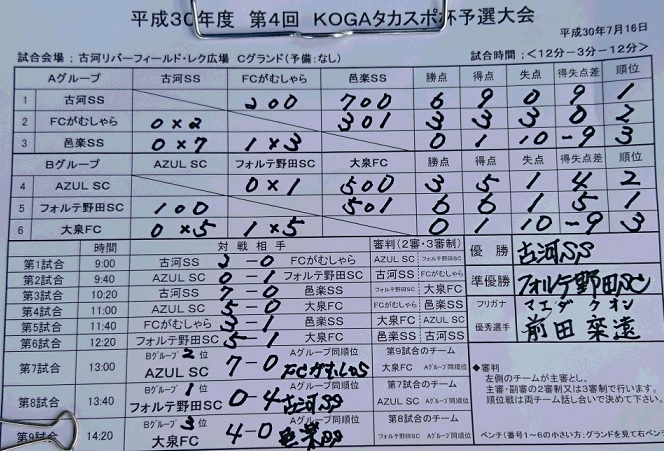 平成30年度 第4回 KOGAタカスポ杯予選大会
平成30年7月16日
試合会場：古河リバーフィールド・レク広場 Cグランド(予備：なし)
試合時間：<12分ー3分ー12分>
Aグループ 古河SS FCがむしゃら 邑楽SS 勝点 得点 失点 得失点差 順位
1 古河SS 2 0 0 7 0 0 6 9 0 9 1
2 FCがむしゃら 0 × 2 3 0 1 3 3 3 0 2
3 邑楽SS 0 × 7 1 × 3 0 1 10 -9 3
Bグループ AZUL SC フォルテ野田SC 大泉FC 勝点 得点 失点 得失点差 順位
4 AZUL SC 0 × 1 5 0 0 3 5 1 4 2
5 フォルテ野田SC 1 0 0 5 0 1 6 6 1 5 1
6 大泉FC 0 × 5 1 × 5 0 1 10 -9 3
時間 対戦相手 審判(2審・3審制)
第1試合 9:00 古河SS 2-0 FCがむしゃら AZUL SC フォルテ野田SC
第2試合 9:40 AZUL SC 0-1 フォルテ野田SC 古河SS FCがむしゃら
第3試合 10:20 古河SS 7-0 邑楽SS フォルテ野田SC 大泉FC
第4試合 11:00 AZUL SC 5-0 大泉FC FCがむしゃら 邑楽SS
第5試合 11:40 FCがむしゃら 3-1 邑楽SS 大泉FC AZUL SC
第6試合 12:20 フォルテ野田SC 5-1 大泉FC 邑楽SS 古河SS
第7試合 13:00 Bグループ 2 位 AZUL SC 7-0 Aグループ同順位 FCがむしゃら 第9試合のチーム 大泉FC Aグループ同順位
第8試合 13:40 Bグループ 1 位 フォルテ野田SC 0-4 Aグループ同順位 古河SS 第7試合のチーム AZUL SC Aグループ同順位
第9試合 14:20 Bグループ 3 位 大泉FC 4-0 Aグループ同順位 邑楽SS 第8試合のチーム フォルテ野田SC Aグループ同順位
優勝 古河SS
準優勝 フォルテ野田SC
フリガナ マエダ クオン
優秀選手 前田 栞遠
◆審判
左側のチームが主審とし、
主審・副審の2審制又は3審制で行います。
順位戦は両チーム話し合いで決めて下さい。
ベンチ(番号1～6の小さい方：グランドを見て右ベン